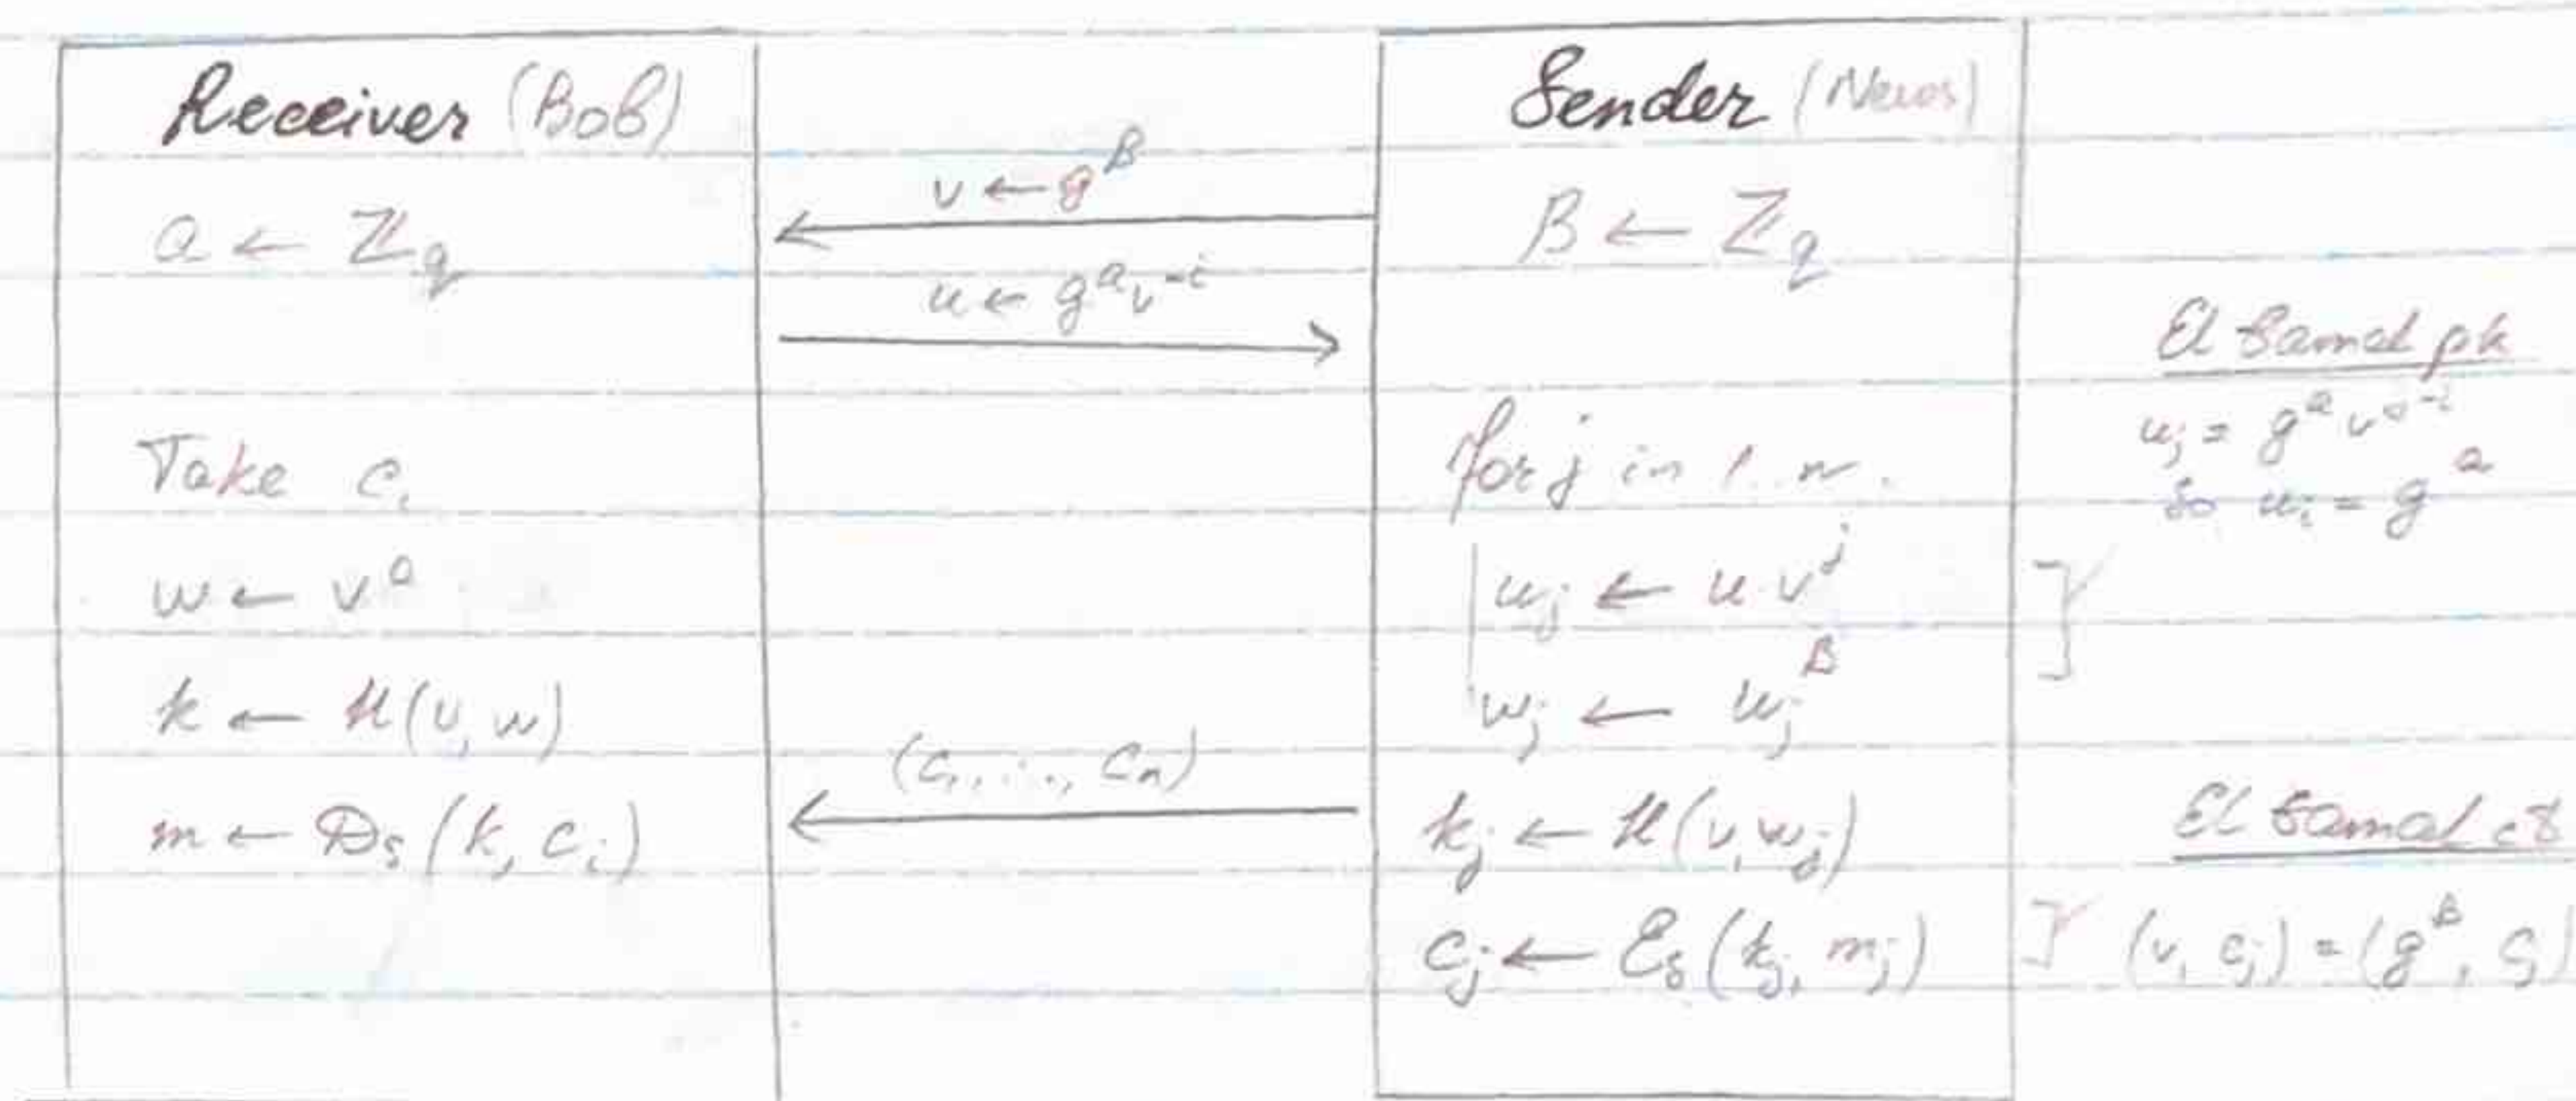 Receiver (Bob)
a ← ℤq
Take ci
w ← v^a
k ← H(v, w)
m ← Ds(k, ci)
v ← g^β
u ← g^a v^-i
(c1, ..., cn)
Sender (News)
β ← ℤq
for j in 1..n.
uj ← u·v^j
wj ← uj^β
kj ← H(v, wj)
cj ← Es(kj, mj)
El Gamal pk
so ui = g^a
El Gamal ct
(v, cj) = (g^β, cj)